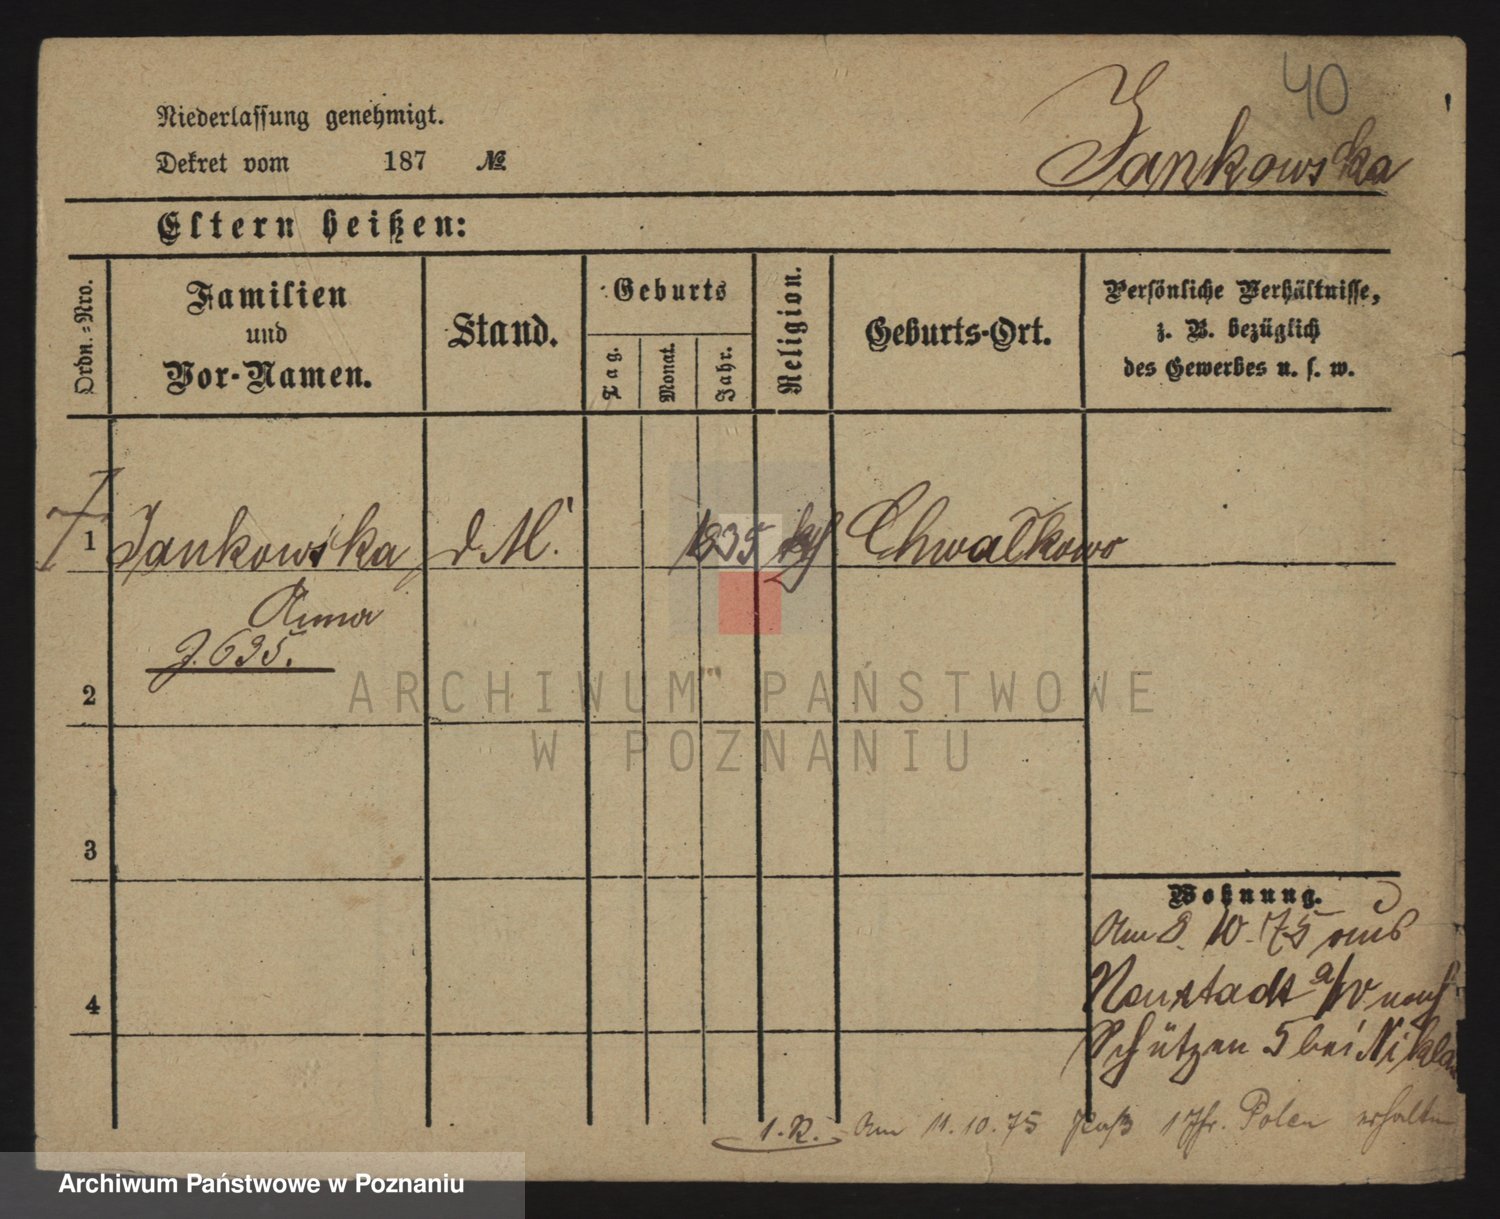 40
Jankowska
Niederlassung genehmigt.
Dekret vom 187 №
Eltern heißen:
Ordn.=Nro.
Familien
und
Vor-Namen.
Stand.
Geburts
Tag.
Monat.
Jahr.
Religion.
Geburts-Ort.
Persönliche Verhältnisse,
z. B. bezüglich
des Gewerbes u. s. w.
1 Jankowska d. M. 1835 kth Chwałkowo
Anna
J. 635.
2
3
4
Wohnung.
Am 8. 10. 75 aus
Neustadt a/W nach
Schützen 5 bei
Am 11.10.75 Paß 1 Jhr. Polen erhalten
ARCHIWUM PAŃSTWOWE
W POZNANIU
Archiwum Państwowe w Poznaniu